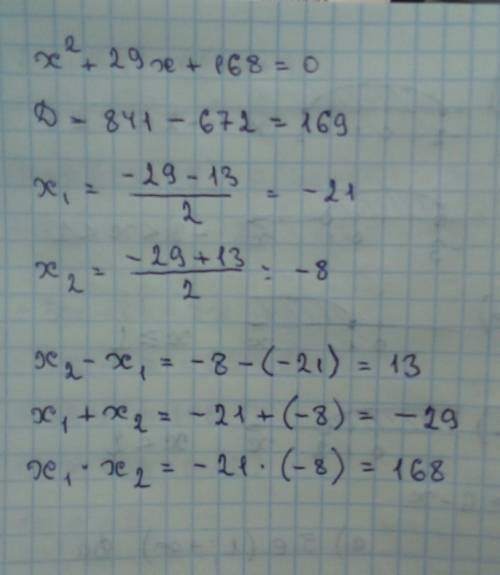 x² + 29x + 168 = 0
D = 841 - 672 = 169
x₁ = (-29 - 13)/2 = -21
x₂ = (-29 + 13)/2 = -8
x₂ - x₁ = -8 - (-21) = 13
x₁ + x₂ = -21 + (-8) = -29
x₁ · x₂ = -21 · (-8) = 168